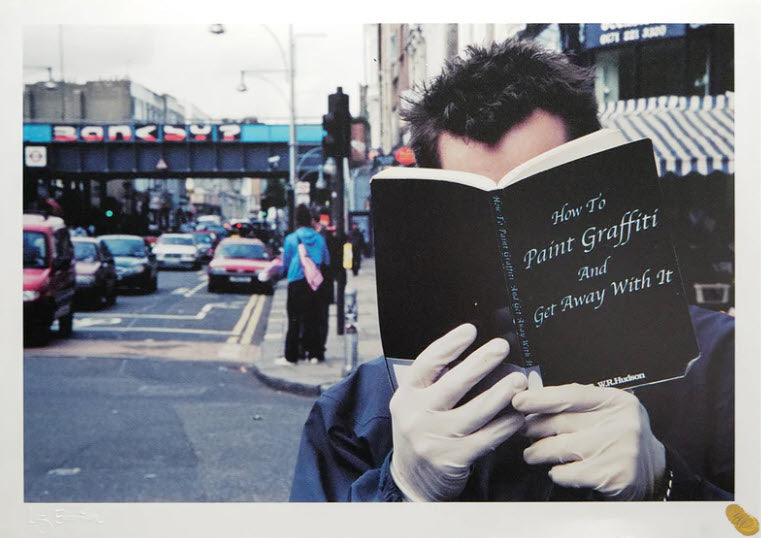 0171 221 3300
BANKSY?
How To
Paint Graffiti
And
Get Away With It
How To Paint Graffiti And Get Away With It
W.R.Hudson